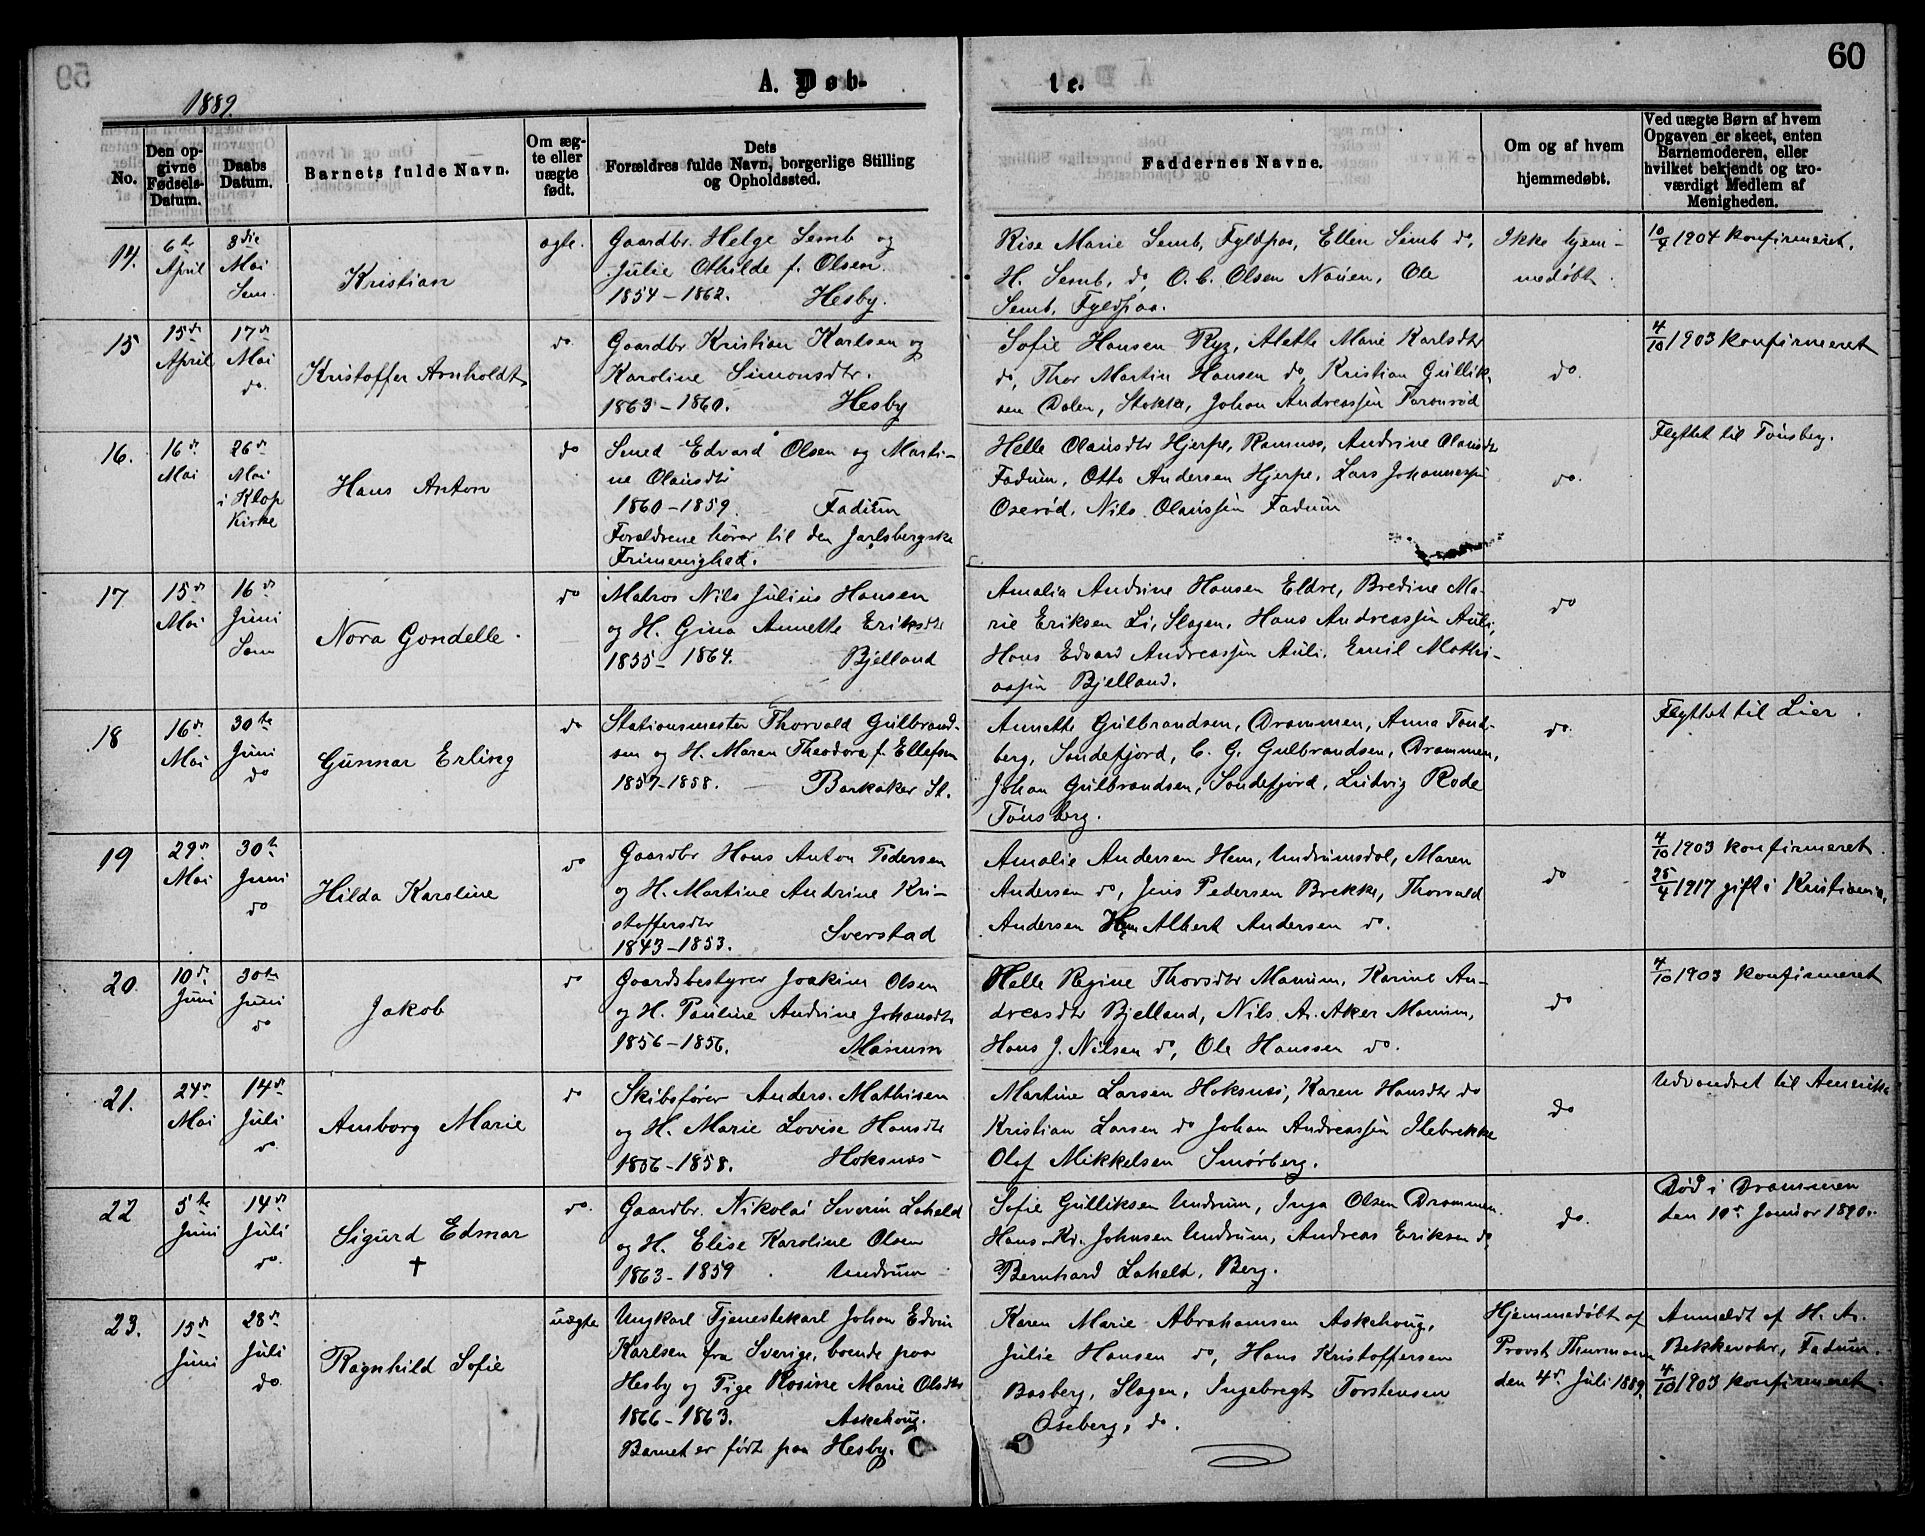 60
A. Døb-
te.
1889.
No.
Den op-
givne
Fødsels-
Datum.
Daabs
Datum.
Barnets fulde Navn.
Om æg-
te eller
uægte
født.
Dets
Forældres fulde Navn, borgerlige Stilling
og Opholdssted.
Faddernes Navne.
Om og af hvem
hjemmedøbt.
Ved uægte Børn af hvem
Opgaven er skeet, enten
Barnemoderen, eller
hvilket bekjendt og tro-
værdigt Medlem af
Menigheden.
14.
6te
April
3die
Mai
Sem.
Kristian
ægte.
Gaardbr. Helge Semb og
Julie Othilde f. Olsen.
1854-1862. Hesby.
Rise Marie Semb, Fyldpaa, Ellen Semb do,
H. Semb, do, O. C. Olsen Nauen, Ole
Semb, Fyldpaa.
Ikke hjem-
medøbt.
1904 konfirmeret.
15
15de
April
17de
Mai
do.
Kristoffer Arnholdt
do
Gaardbr. Kristian Karlsen og
Karoline Simonsdtr.
1863-1860. Hesby
Sofie Hansen Ryg, Alette Marie Karlsdtr
do, Thor Martin Hansen do, Kristian Gullik-
sen Dalen, Stokke, Johan Andreassen Faronrød
do.
4/10 1903 konfirmeret
16.
16de
Mai
26de
Mai
i Klop
Kirke
Hans Anton
do
Smed Edvard Olsen og Marti-
ne Olausdtr
1860-1859. Fadum
Forældrene hører til den Jarlsbergske
Frimenighed.
Helle Olausdtr Hjerpe, Ramnes, Andrine Olausdtr
Fadum, Otto Andersen Hjerpe, Lars Johannessen
Oserød, Nils Olaussen Fadum
do.
Flyttet til Tønsberg.
17
15de
Mai
16de
Juni
Sem
Nora Gondelle.
do
Matros Nils Julius Hansen
og H. Gina Annette Eriksdtr
1855-1864. Bjelland
Amalia Andrine Hansen Eldre, Bredine Ma-
rie Eriksen Li, Slagen, Hans Andreassen Auli,
Hans Edvard Andreassen Auli, Emil Mathi-
assen Bjelland.
do
18
16de
Mai
30te
Juni
do
Gunnar Erling
do
Stationsmester Thorvald Gulbrand-
sen og H. Maren Theodora f. Ellefsen
1857-1858. Barkaker St.
Annette Gulbrandsen, Drammen, Anna Tand-
berg, Sandefjord, C. G. Gulbrandsen, Drammen,
Johan Gulbrandsen, Sandefjord, Ludvig Rode
Tønsberg.
do.
Flyttet til Lier.
19
29de
Mai
30te
Juni
do
Hilda Karoline
do
Gaardbr Hans Anton Pedersen
og H. Martine Andrine Kri-
stoffersdtr
1843-1853. Sverstad
Amalie Andersen Hem, Undrumsdal, Maren
Andersen do, Jens Pedersen Brekke, Thorvald
Andersen Hem Albert Andersen do.
do
4/10 1903 konfirmeret.
25/4 1917 gift i Kristiania.
20.
10de
Juni
30te
Juni
do
Jakob
do
Gaardsbestyrer Joakim Olsen
og H. Pauline Andrine Johansdtr
1856-1856. Manum
Helle Regine Thorsdtr Manum, Karine An-
dreasdtr Bjelland, Nils A. Aker Manum,
Hans J. Nilsen do, Ole Hanssen do.
do
4/10 1903 konfirmeret
21.
24de
Mai
14de
Juli
do.
Amborg Marie
do
Skibsfører Anders Mathisen
og H. Marie Lovise Hansdtr
1856-1858. Hoksnes
Martine Larsen Hoksnes, Karen Hansdtr do
Kristian Larsen do Johan Andreassen Ilebrekke
Olaf Mikkelsen Smørberg.
do
Udvandret til Amerika
22
5te
Juni
14de
Juli
do.
Sigurd Edmar
†
do.
Gaardbr. Nikolai Severin Laheld
og H. Elise Karoline Olsen
1863-1859. Undrum
Sofie Gulliksen Undrum, Inga Olsen Drammen.
Hans Kr. Johnsen Undrum, Andreas Eriksen do,
Bernhard Laheld, Berg.
do.
Død i Drammen
den 10de Januar 1890.
23.
15de
Juni
28de
Juli
do.
Ragnhild Sofie
uægte
Ungkarl Tjenestekarl Johan Edvin
Karlsen fra Sverige, boende paa
Hesby og Pige Rosine Marie Olsdtr
1866-1863. Askehoug.
Barnet er født paa Hesby.
Karen Marie Abrahamsen Askehoug,
Julie Hansen do, Hans Kristoffersen
Basberg, Slagen, Ingebregt Torstensen
Oseberg, do.
Hjemmedøbt af
Provst Thurmann
den 4de Juli 1889.
Anmeldt af H. A.
Bekkevahr, Fadum.
4/10 1903 konfirmeret.